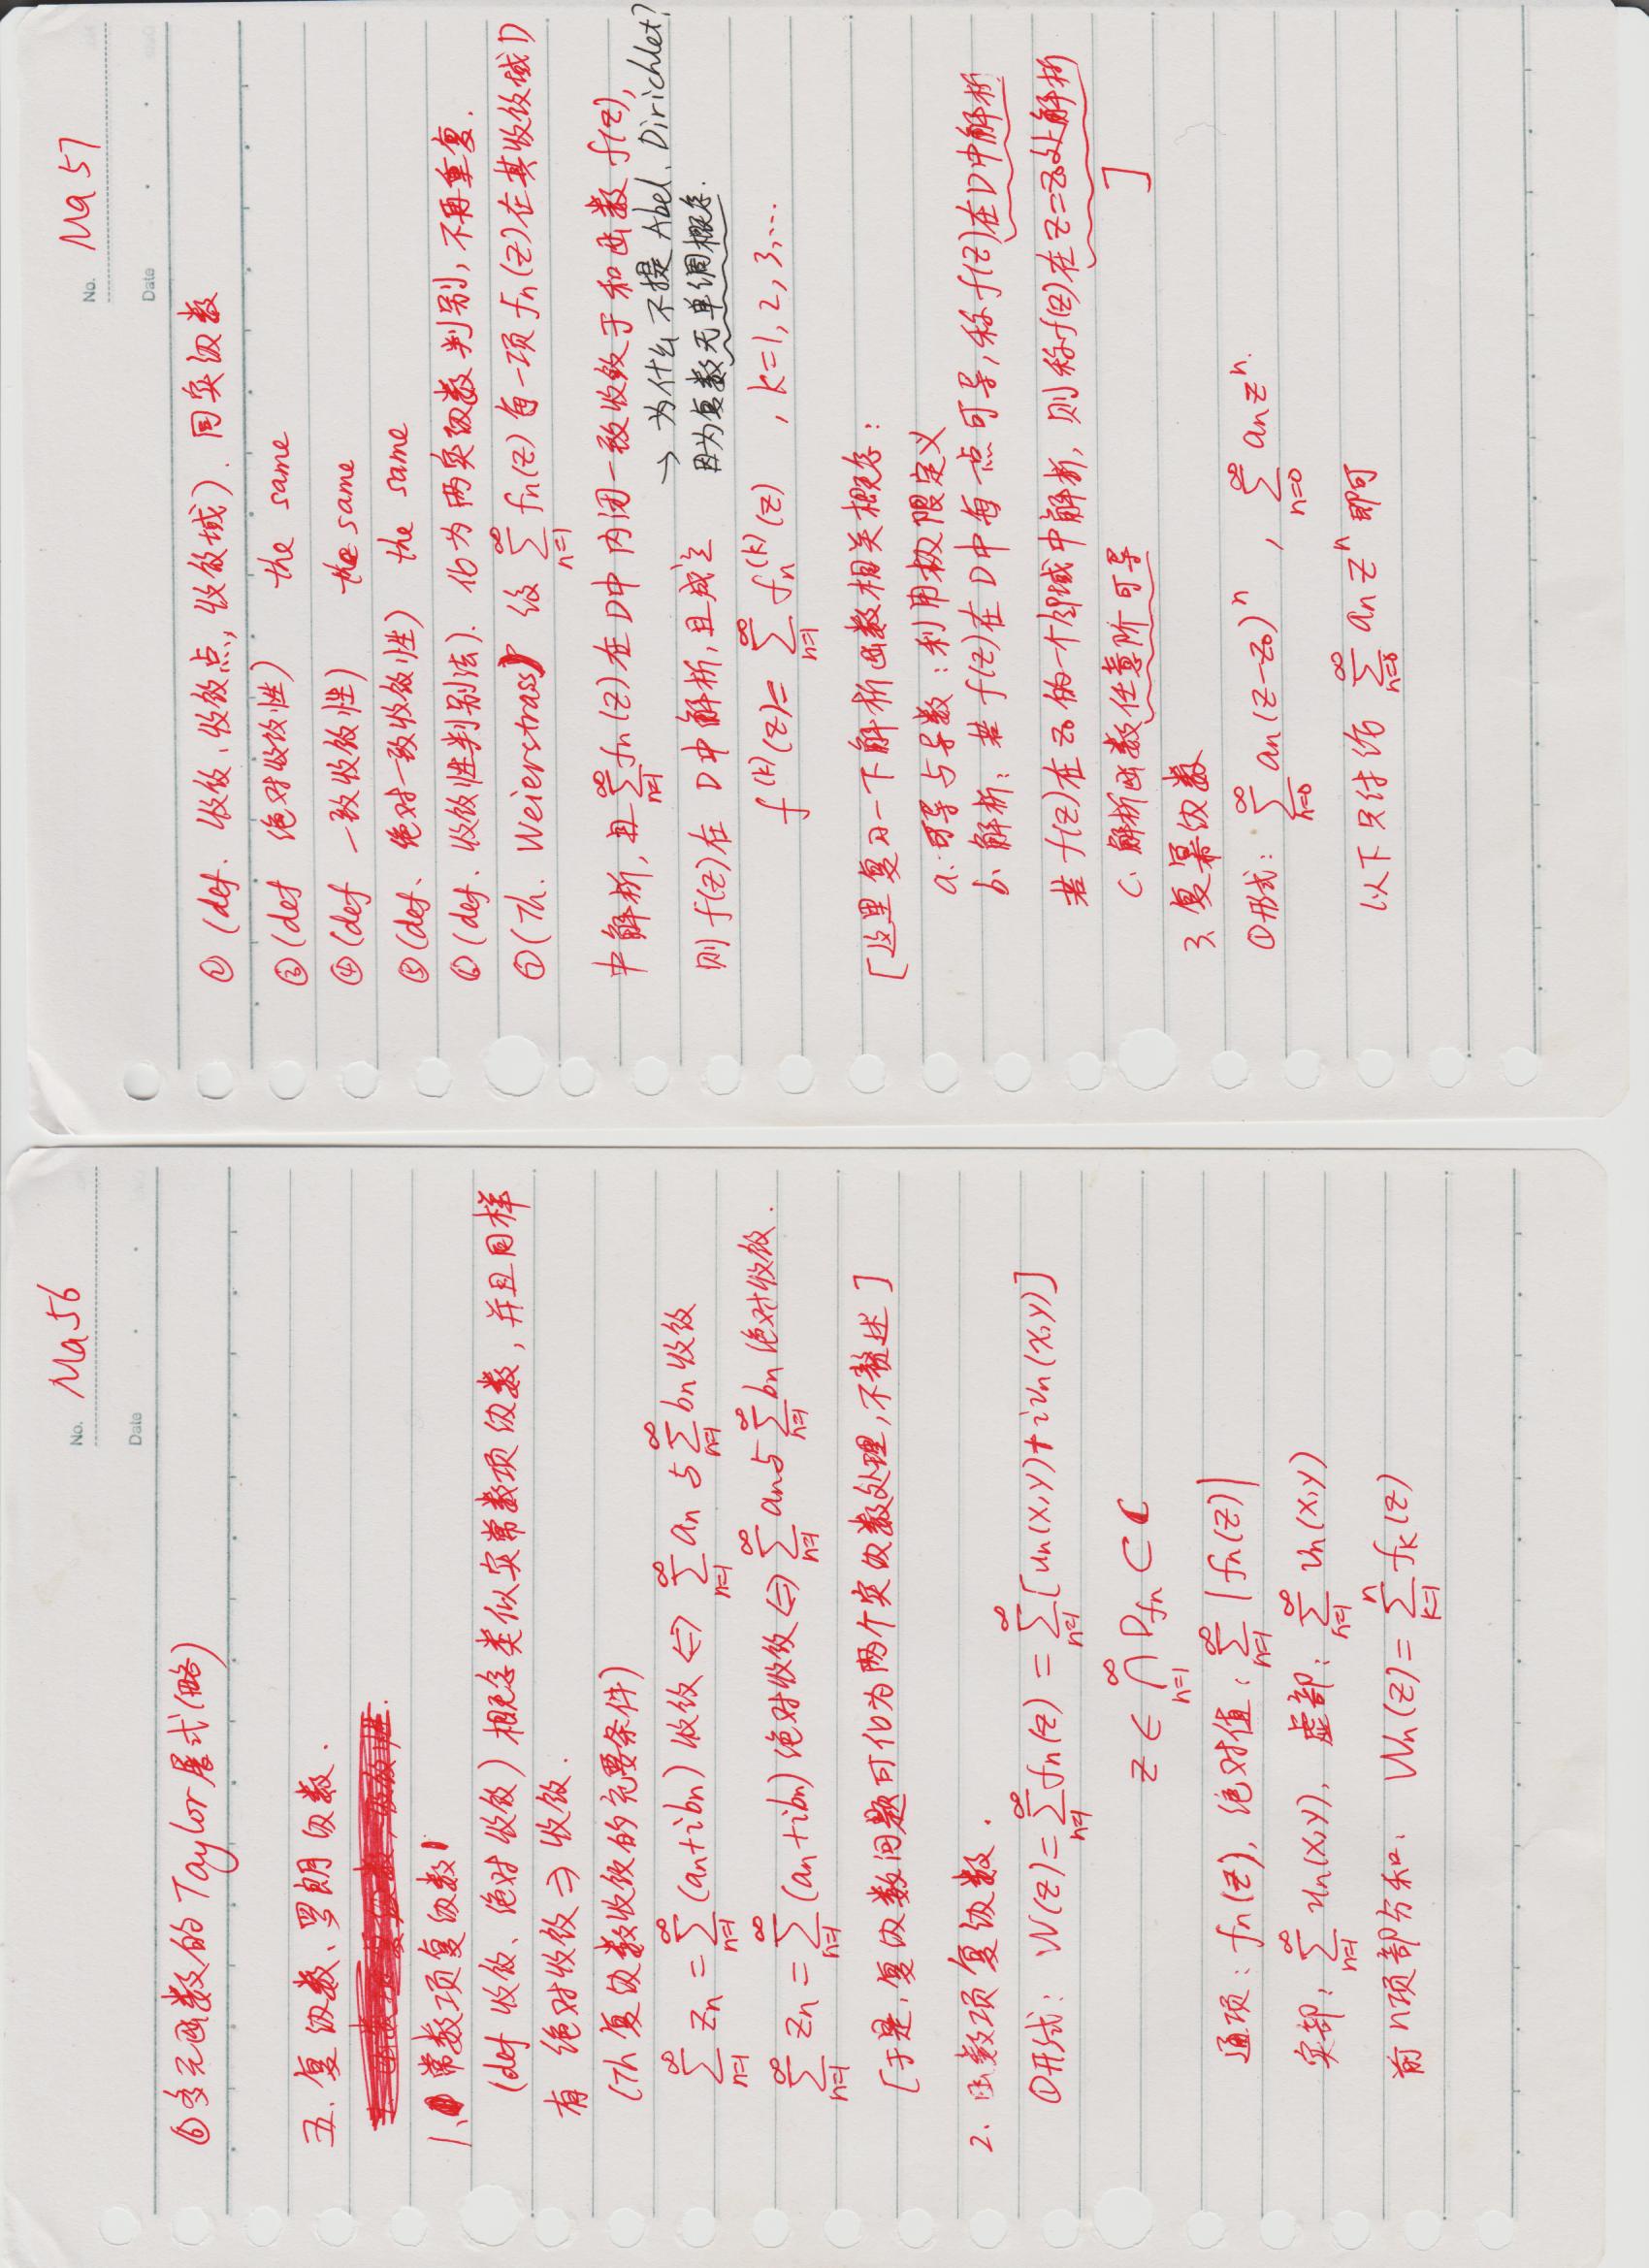 No. Ma56
Date
⑥多元函数的Taylor展式(略)
五.复级数、罗朗级数.
1. 常数项复级数
(def 收敛、绝对收敛)概念类似实常数项级数,并且同样
有 绝对收敛⇒收敛.
(Th 复级数收敛的充要条件)
∑_{n=1}^{∞} z_n = ∑_{n=1}^{∞} (a_n+ib_n) 收敛 ⇔ ∑_{n=1}^{∞} a_n 与 ∑_{n=1}^{∞} b_n 收敛
∑_{n=1}^{∞} z_n = ∑_{n=1}^{∞} (a_n+ib_n) 绝对收敛 ⇔ ∑_{n=1}^{∞} a_n 与 ∑_{n=1}^{∞} b_n 绝对收敛.
[于是,复级数问题可化为两个实级数处理,不赘述]
2. 函数项复级数.
①形式: W(z)=∑_{n=1}^{∞} f_n(z) = ∑_{n=1}^{∞} [u_n(x,y)+iv_n(x,y)]
z ∈ ∩_{n=1}^{∞} D_{f_n} ⊂ C
通项: f_n(z), 绝对值: ∑_{n=1}^{∞} |f_n(z)|
实部: ∑_{n=1}^{∞} u_n(x,y), 虚部: ∑_{n=1}^{∞} v_n(x,y)
前n项部分和: W_n(z)=∑_{k=1}^{n} f_k(z)
No. Ma57
Date
② (def. 收敛、收敛点, 收敛域). 同实级数
③(def 绝对收敛性) the same
④(def 一致收敛性) the same
⑤(def. 绝对一致收敛性) the same
⑥(def. 收敛性判别法). 化为两实级数判别,不再重复.
⑦(Th. Weierstrass) 级 ∑_{n=1}^{∞} f_n(z) 每一项 f_n(z) 在其收敛域D
中解析, 且 ∑_{n=1}^{∞} f_n(z) 在D中内闭一致收敛于和函数 f(z),
→ 为什么不提 Abel、Dirichlet?
则 f(z) 在 D中解析,且成立
因为复数无单调概念.
f^{(k)}(z)=∑_{n=1}^{∞} f_n^{(k)}(z) , k=1,2,3,…
[这里复习一下解析函数相关概念:
a. 可导与导数:利用极限定义
b. 解析: 若 f(z) 在D中每一点可导,称 f(z) 在D中解析
若 f(z) 在 z₀ 的一个邻域中解析, 则称 f(z) 在 z=z₀处解析
c. 解析函数任意阶可导 ]
3. 复幂级数
①形式: ∑_{n=0}^{∞} a_n(z-z₀)^n , ∑_{n=0}^{∞} a_n z^n.
以下只讨论 ∑_{n=0}^{∞} a_n z^n 即可